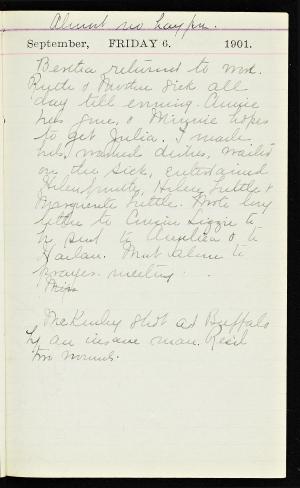 Almost no
September, FRIDAY 6. 1901.
Bertha returned to work.
Ruth & Mother sick all
day till evening. Angie
has gone, & Minnie hopes
to get Julia. I made
beds, washed dishes, waited
on the sick, entertained
Helen Tuttle &
Marguerite Tuttle. Wrote long
letter to Cousin Lizzie to
be sent to Aurelia & to
Harlan. Went alone to
prayer-meeting.
Miss
McKinley shot at Buffalo
by an insane man. Rec'd
two wounds.